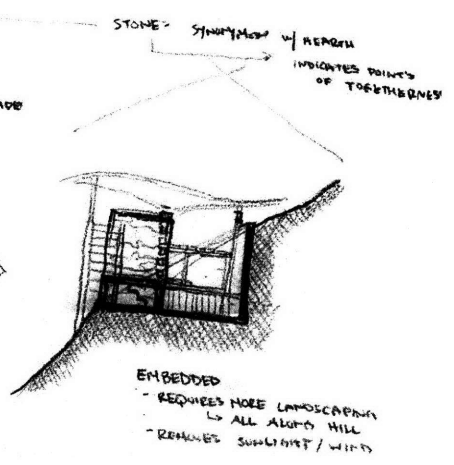 STONE - SYNONYMOUS w/ HEARTH
INDICATES POINTS
OF TOGETHERNESS
EMBEDDED
- REQUIRES MORE LANDSCAPING
↳ ALL ALONG HILL
- REMOVES SUNLIGHT / WIND